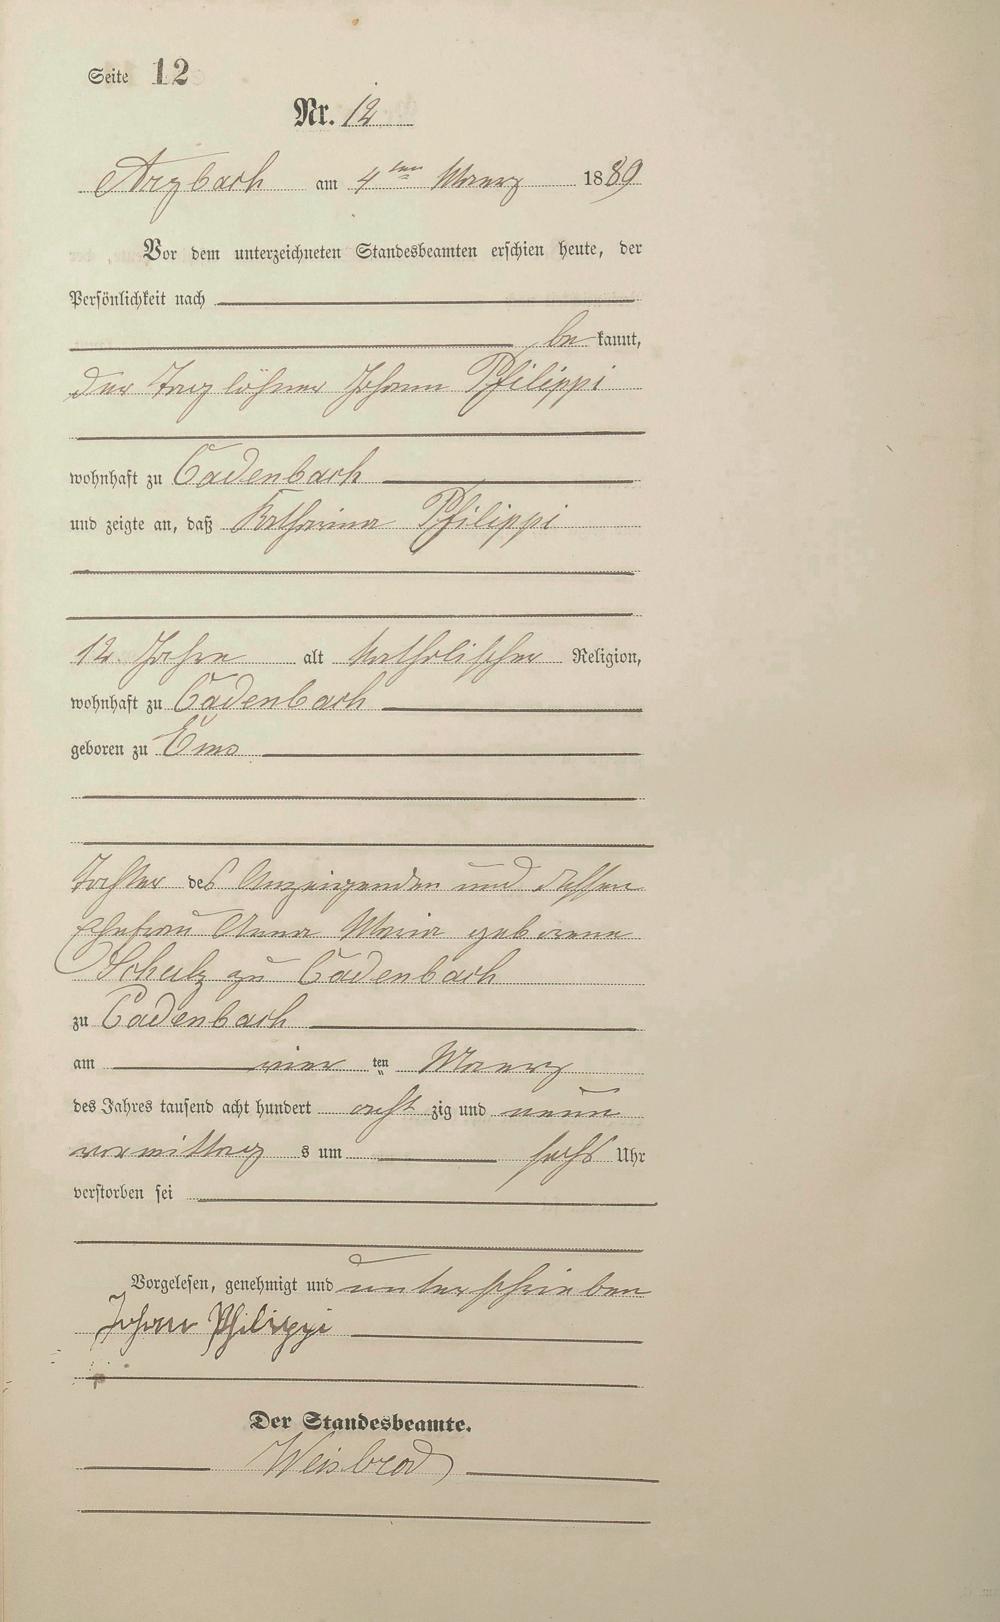 Seite 12
Nr. 12
Arzbach am 4ten Maerz 1889
Vor dem unterzeichneten Standesbeamten erschien heute, der
Persönlichkeit nach
bekannt,
der Taglöhner Johann Philippi
wohnhaft zu Cadenbach
und zeigte an, daß Katharina Philippi
12 Jahre alt katholischer Religion,
wohnhaft zu Cadenbach
geboren zu Ems
Tochter des Anzeigenden und dessen
Ehefrau Anna Maria geborene
Schulz zu Cadenbach
zu Cadenbach
am vier ten Maerz
des Jahres tausend acht hundert acht zig und neun
vormittag s um sechs Uhr
verstorben sei
Vorgelesen, genehmigt und unterschrieben
Johann Philippi
Der Standesbeamte.
Weisbrod